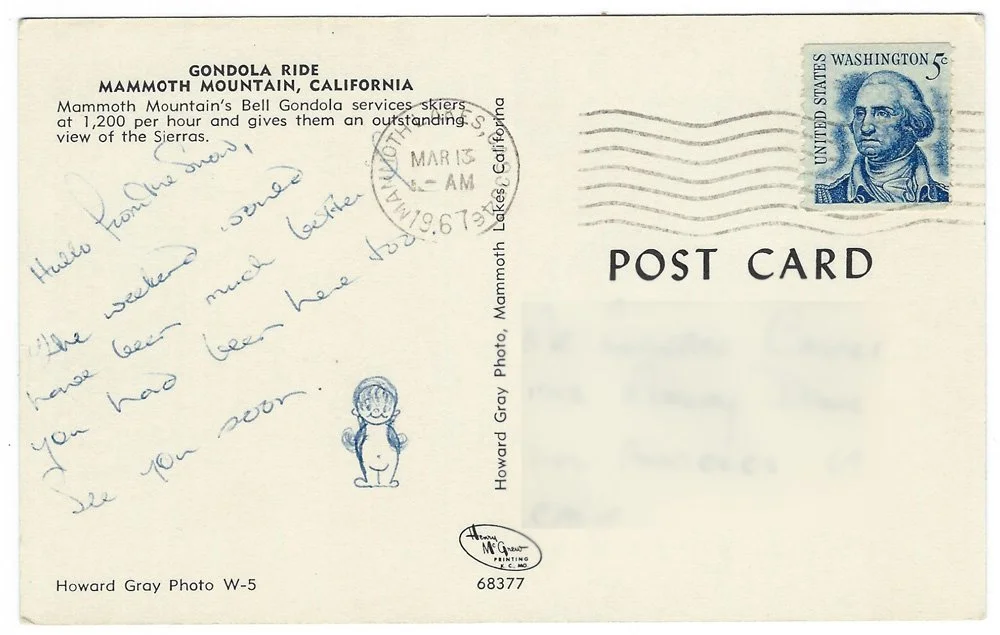 GONDOLA RIDE
MAMMOTH MOUNTAIN, CALIFORNIA
Mammoth Mountain's Bell Gondola services skiers
at 1,200 per hour and gives them an outstanding
view of the Sierras.
Hello from the Snow,
The weekend would
have been much better if
you had been here too.
See you soon.
Howard Gray Photo W-5
MAMMOTH LAKES, CA
MAR 13
AM
1967
Howard Gray Photo, Mammoth Lakes, California
UNITED STATES
WASHINGTON 5c
POST CARD
Henry
McGrew
PRINTING
K. C. MO.
68377